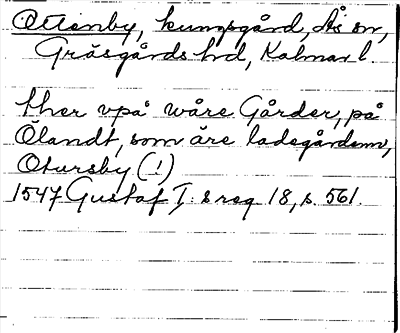 Ottenby, kungsgård, Ås sn,
Gräsgårds hd, Kalmar l.
ther vpå wåre Gårder, på
Ölandt, som äre ladegårdenn,
Otursby (!)
1547 Gustaf I:s reg. 18, s. 561.